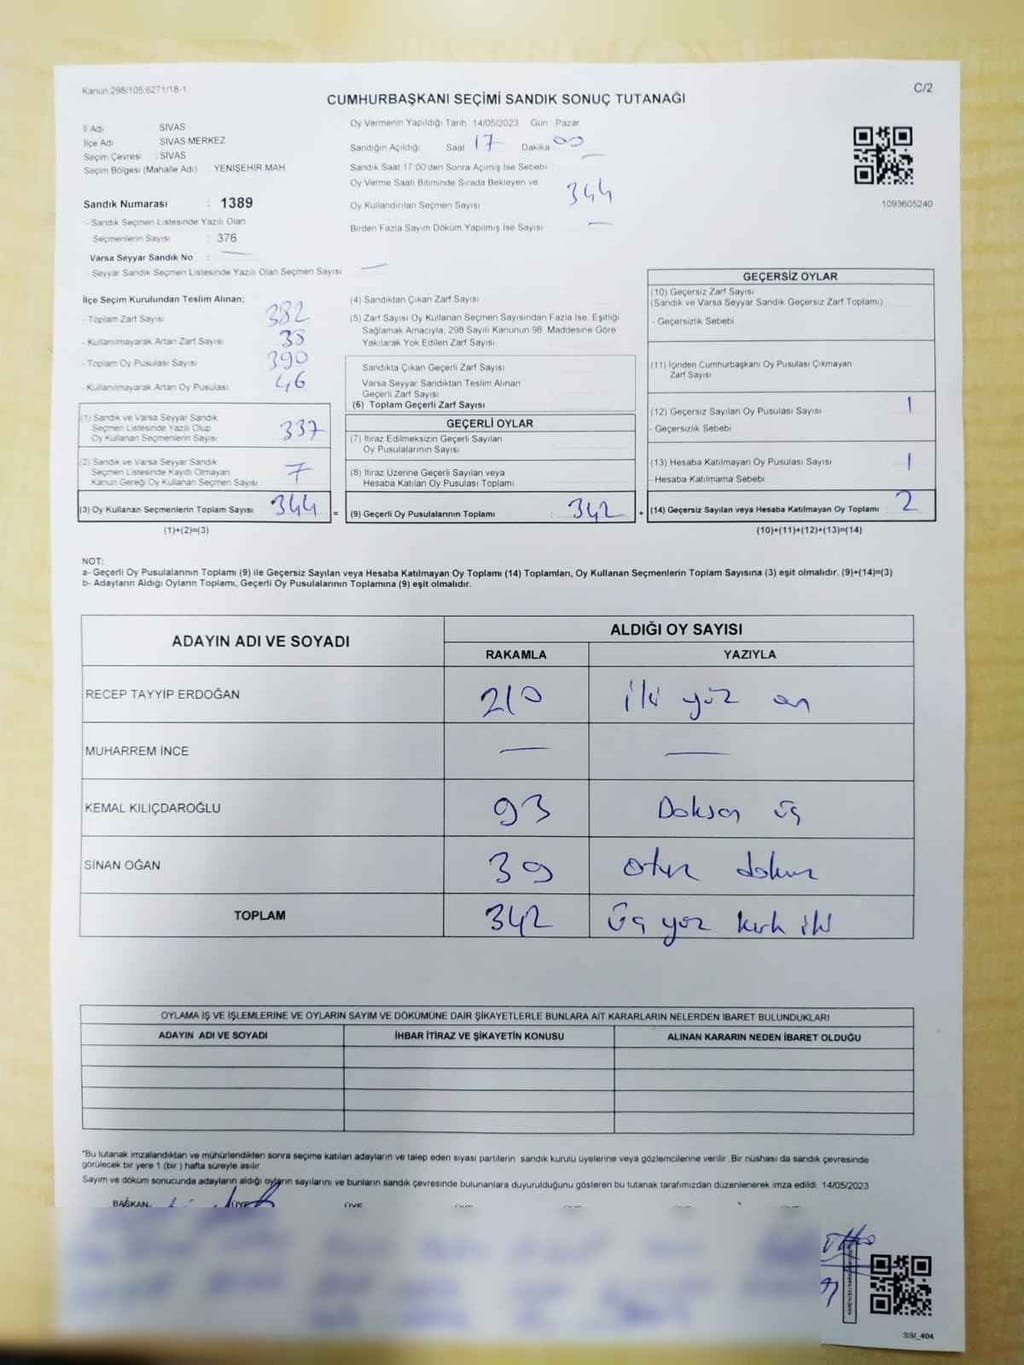 Kanun:298/105,6271/18-1
C/2
CUMHURBAŞKANI SEÇİMİ SANDIK SONUÇ TUTANAĞI
İl Adı : SİVAS
İlçe Adı : SİVAS MERKEZ
Seçim Çevresi : SİVAS
Seçim Bölgesi (Mahalle Adı) : YENİŞEHİR MAH
Sandık Numarası : 1389
- Sandık Seçmen Listesinde Yazılı Olan
Seçmenlerin Sayısı : 376
Varsa Seyyar Sandık No : —
- Seyyar Sandık Seçmen Listesinde Yazılı Olan Seçmen Sayısı —
Oy Vermenin Yapıldığı Tarih 14/05/2023 Gün Pazar
Sandığın Açıldığı Saat 17 Dakika 00
Sandık Saat 17:00'den Sonra Açılmış İse Sebebi —
Oy Verme Saati Bitiminde Sırada Bekleyen ve
Oy Kullandırılan Seçmen Sayısı 344
Birden Fazla Sayım Döküm Yapılmış İse Sayısı —
1093605240
İlçe Seçim Kurulundan Teslim Alınan;
- Toplam Zarf Sayısı 382
- Kullanılmayarak Artan Zarf Sayısı 38
- Toplam Oy Pusulası Sayısı 390
- Kullanılmayarak Artan Oy Pusulası 46
(1) Sandık ve Varsa Seyyar Sandık
Seçmen Listesinde Yazılı Olup
Oy Kullanan Seçmenlerin Sayısı : 337
(2) Sandık ve Varsa Seyyar Sandık
Seçmen Listesinde Kaydı Olmayan
Kanun Gereği Oy Kullanan Seçmen Sayısı : 7
(3) Oy Kullanan Seçmenlerin Toplam Sayısı : 344
(1)+(2)=(3)
(4) Sandıktan Çıkan Zarf Sayısı
(5) Zarf Sayısı Oy Kullanan Seçmen Sayısından Fazla İse, Eşitliği
Sağlamak Amacıyla, 298 Sayılı Kanunun 98. Maddesine Göre
Yakılarak Yok Edilen Zarf Sayısı
Sandıkta Çıkan Geçerli Zarf Sayısı
Varsa Seyyar Sandıktan Teslim Alınan
Geçerli Zarf Sayısı
(6) Toplam Geçerli Zarf Sayısı
=
GEÇERLİ OYLAR
(7) İtiraz Edilmeksizin Geçerli Sayılan
Oy Pusulalarının Sayısı
(8) İtiraz Üzerine Geçerli Sayılan veya
Hesaba Katılan Oy Pusulası Toplamı
(9) Geçerli Oy Pusulalarının Toplamı : 342
+
GEÇERSİZ OYLAR
(10) Geçersiz Zarf Sayısı
(Sandık ve Varsa Seyyar Sandık Geçersiz Zarf Toplamı)
- Geçersizlik Sebebi
(11) İçinden Cumhurbaşkanı Oy Pusulası Çıkmayan
Zarf Sayısı
(12) Geçersiz Sayılan Oy Pusulası Sayısı 1
- Geçersizlik Sebebi
(13) Hesaba Katılmayan Oy Pusulası Sayısı 1
- Hesaba Katılmama Sebebi
(14) Geçersiz Sayılan veya Hesaba Katılmayan Oy Toplamı : 2
(10)+(11)+(12)+(13)=(14)
NOT:
a- Geçerli Oy Pusulalarının Toplamı (9) ile Geçersiz Sayılan veya Hesaba Katılmayan Oy Toplamı (14) Toplamları, Oy Kullanan Seçmenlerin Toplam Sayısına (3) eşit olmalıdır. (9)+(14)=(3)
b- Adayların Aldığı Oyların Toplamı, Geçerli Oy Pusulalarının Toplamına (9) eşit olmalıdır.
ADAYIN ADI VE SOYADI
ALDIĞI OY SAYISI
RAKAMLA YAZIYLA
RECEP TAYYİP ERDOĞAN 210 iki yüz on
MUHARREM İNCE — —
KEMAL KILIÇDAROĞLU 93 Doksan üç
SİNAN OĞAN 39 otuz dokuz
TOPLAM 342 üç yüz kırk iki
OYLAMA İŞ VE İŞLEMLERİNE VE OYLARIN SAYIM VE DÖKÜMÜNE DAİR ŞİKAYETLERLE BUNLARA AİT KARARLARIN NELERDEN İBARET BULUNDUKLARI
ADAYIN ADI VE SOYADI İHBAR İTİRAZ VE ŞİKAYETİN KONUSU ALINAN KARARIN NEDEN İBARET OLDUĞU
*Bu tutanak imzalandıktan ve mühürlendikten sonra seçime katılan adayların ve talep eden siyasi partilerin sandık kurulu üyelerine veya gözlemcilerine verilir. Bir nüshası da sandık çevresinde
görülecek bir yere 1 (bir ) hafta süreyle asılır.
Sayım ve döküm sonucunda adayların aldığı oyların sayılarını ve bunların sandık çevresinde bulunanlara duyurulduğunu gösteren bu tutanak tarafımızdan düzenlenerek imza edildi. 14/05/2023
BAŞKAN ÜYE ÜYE
SSI_404